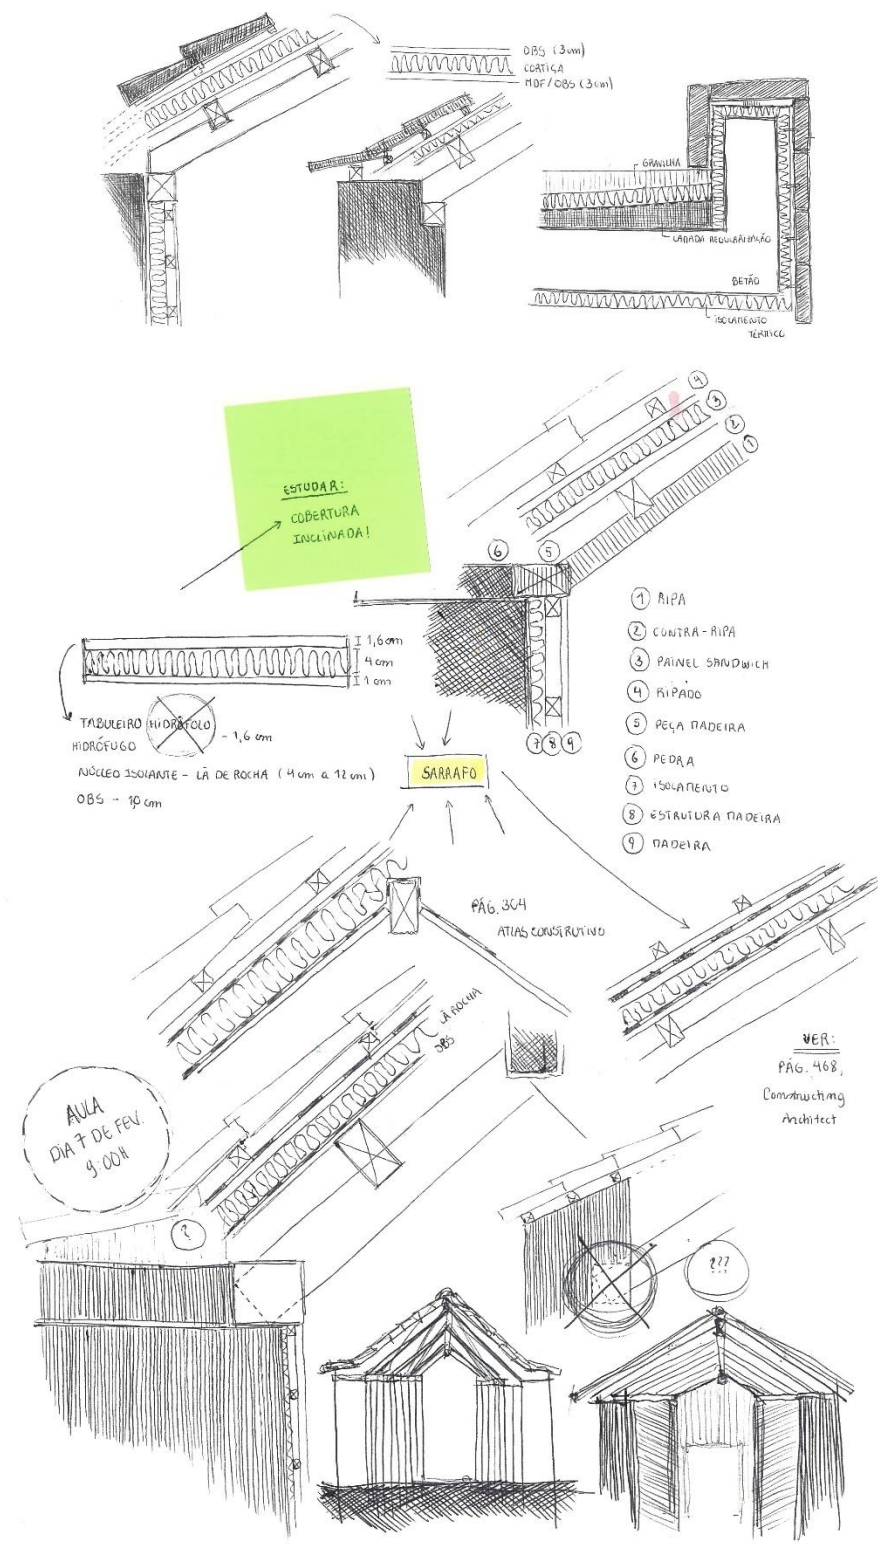 OBS (3cm)
CORTIÇA
MDF/OBS (3cm)
GRAVILHA
CAMADA REGULARIZAÇÃO
BETÃO
ISOLAMENTO
TÉRMICO
ESTUDAR:
COBERTURA
INCLINADA!
4
3
2
1
6
5
1 RIPA
2 CONTRA-RIPA
3 PAINEL SANDWICH
4 RIPADO
5 PEÇA MADEIRA
6 PEDRA
7 ISOLAMENTO
8 ESTRUTURA MADEIRA
9 MADEIRA
7 8 9
1,6 cm
4 cm
1 cm
TABULEIRO HIDRÓFOLO - 1,6 cm
HIDRÓFUGO
NÚCLEO ISOLANTE - LÃ DE ROCHA (4cm a 12cm)
OBS - 1,0 cm
SARRAFO
PÁG. 364
ATLAS CONSTRUTIVO
LÃ ROCHA
OBS
VER:
PÁG. 468,
Constructing
Architect
AULA
DIA 7 DE FEV.
9:00H
?
???